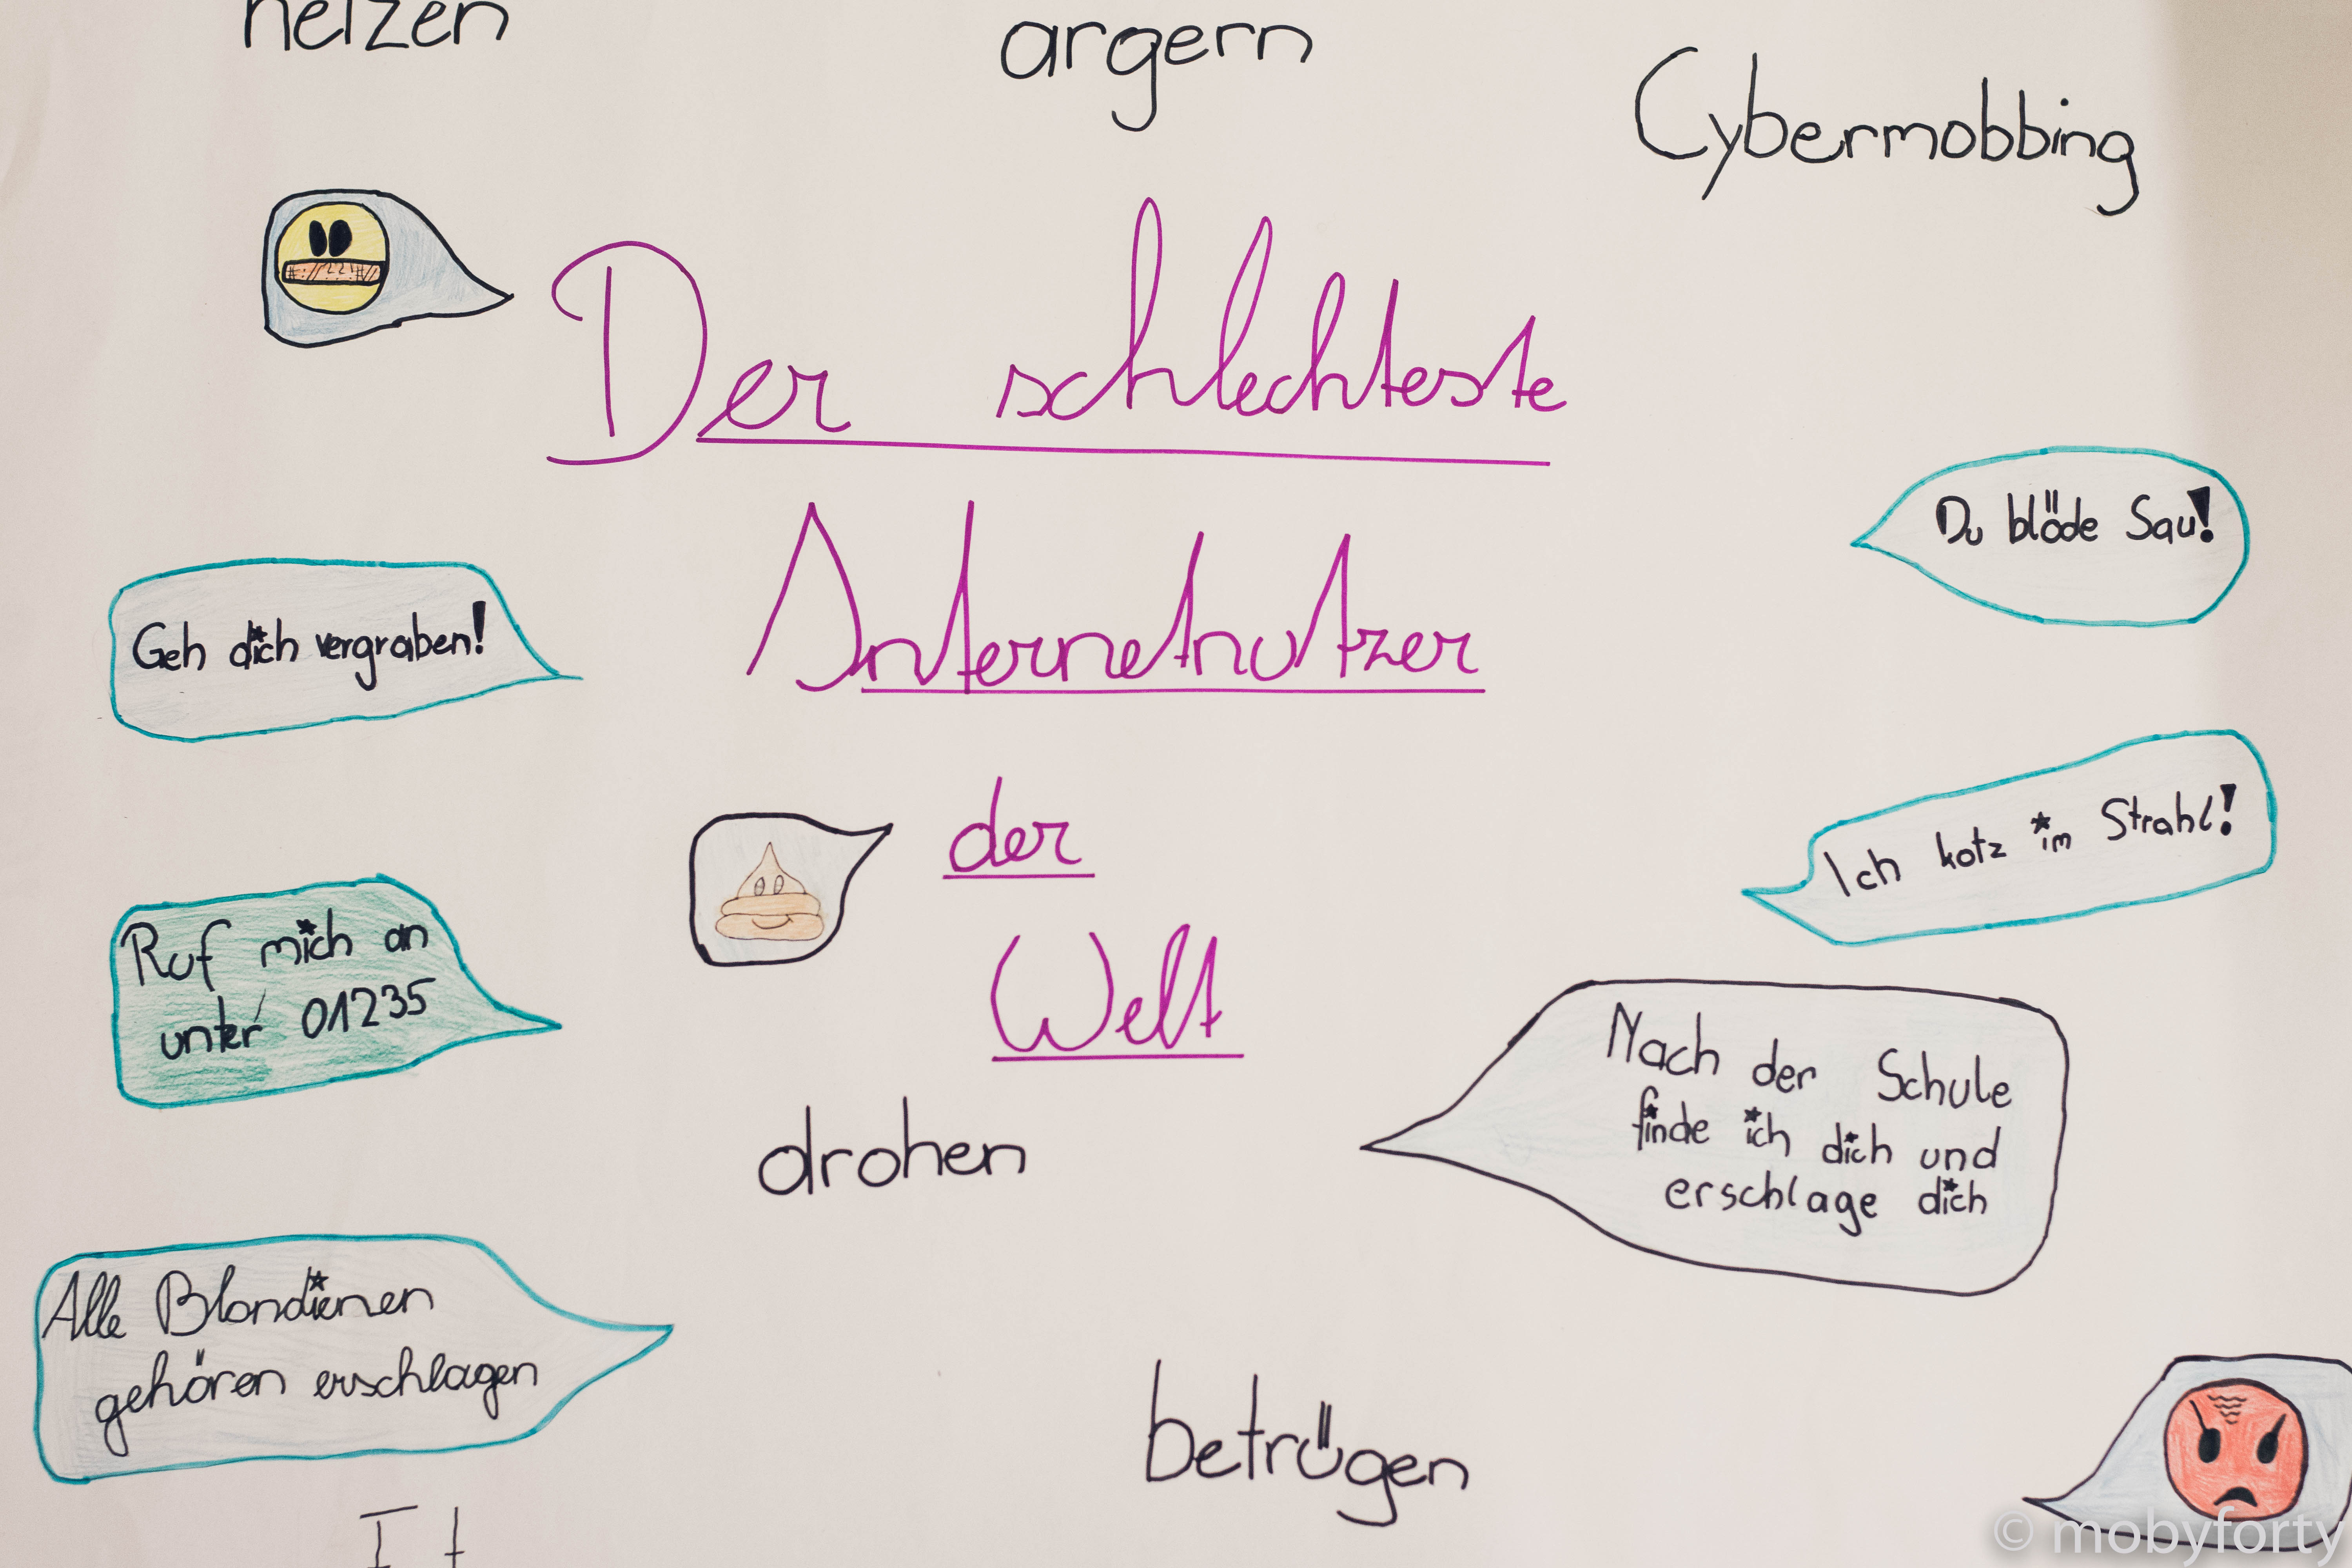 hetzen
ärgern
Cybermobbing
Der schlechteste
Internetnutzer
der
Welt
Du blöde Sau!
Geh dich vergraben!
Ich kotz im Strahl!
Ruf mich an
unter 01235
Nach der Schule
finde ich dich und
erschlage dich
drohen
Alle Blondienen
gehören erschlagen
betrügen
© mobyforty